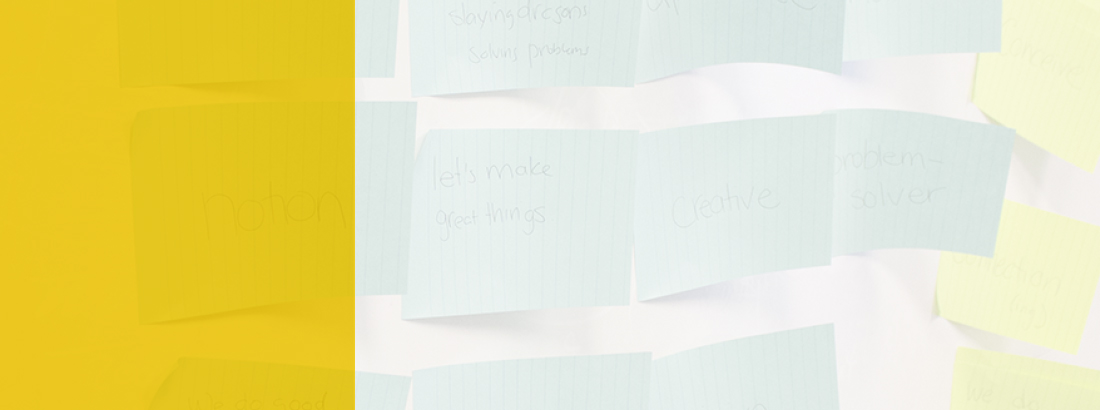 slaying dragons
solving problems
notion
let's make
great things
creative
problem-
solver
(ing)
we do good
we do